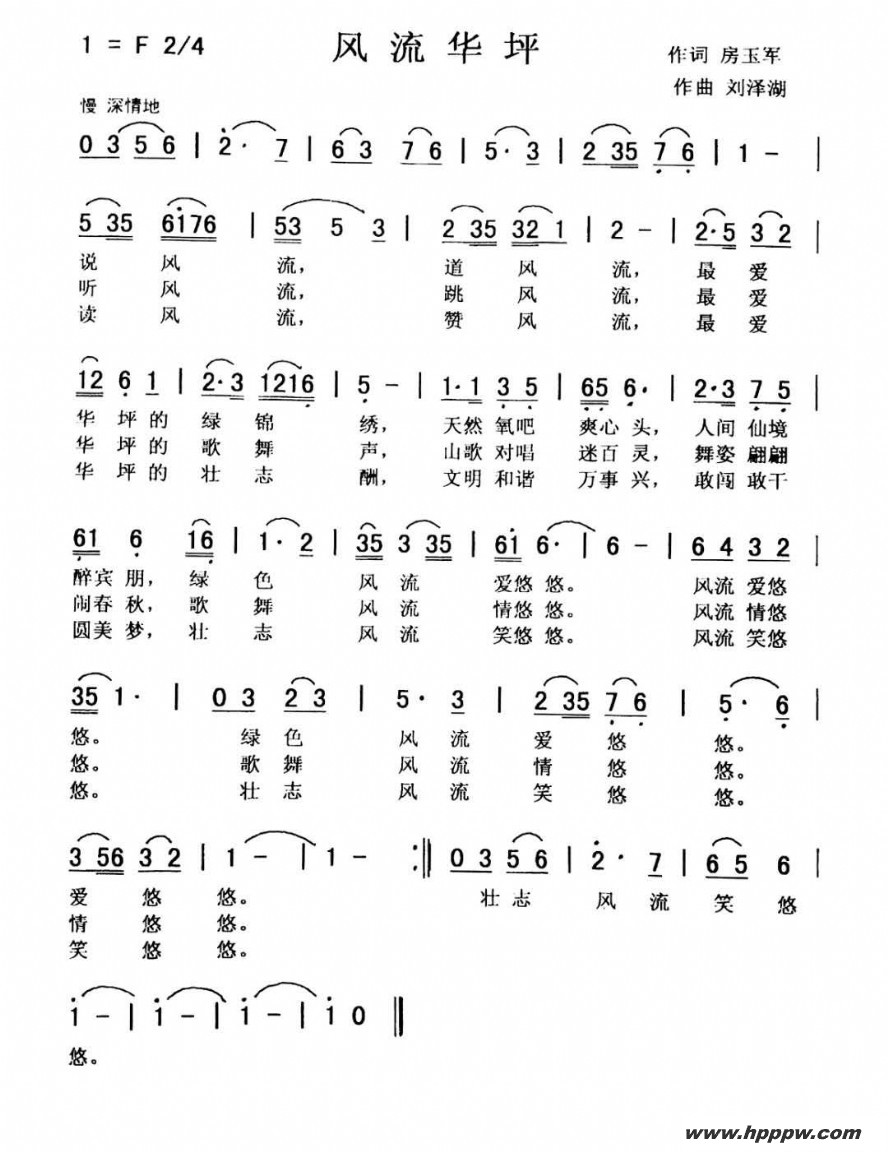 1 = F 2/4 风流华坪 作词 房玉军
作曲 刘泽湖
慢 深情地
0 3 5 6 | 2̇· 7 | 6 3 7 6 | 5· 3 | 2 35 7̣ 6̣ | 1 - |
5 35 6i76 | 53 5 3 | 2 35 32 1 | 2 - | 2·5 3 2 |
说 风 流, 道 风 流, 最 爱
听 风 流, 跳 风 流, 最 爱
读 风 流, 赞 风 流, 最 爱
12 6̣ 1 | 2·3 1216̣ | 5̣ - | 1·1 3̣ 5̣ | 6̣5̣ 6̣· | 2·3 7̣ 5̣ |
华 坪 的 绿 锦 绣, 天然 氧吧 爽心 头, 人间 仙境
华 坪 的 歌 舞 声, 山歌 对唱 迷百 灵, 舞姿 翩翩
华 坪 的 壮 志 酬, 文明 和谐 万事 兴, 敢闯 敢干
6̣1 6̣ 16̣ | 1· 2 | 35 3 35 | 6i 6· | 6 - | 6 4 3 2 |
醉宾 朋, 绿 色 风 流 爱悠 悠。 风流 爱悠
闹春 秋, 歌 舞 风 流 情悠 悠。 风流 情悠
圆美 梦, 壮 志 风 流 笑悠 悠。 风流 笑悠
35 1· | 0 3 2 3 | 5· 3 | 2 35 7̣ 6̣ | 5̣· 6̣ |
悠。 绿 色 风 流 爱 悠 悠。
悠。 歌 舞 风 流 情 悠 悠。
悠。 壮 志 风 流 笑 悠 悠。
3 56 3 2 | 1 - | 1 - :‖ 0 3 5 6 | 2̇· 7 | 6 5 6 |
爱 悠 悠。 壮 志 风 流 笑 悠
情 悠 悠。
笑 悠 悠。
i - | i - | i - | i 0 ‖
悠。
www.hpppw.com